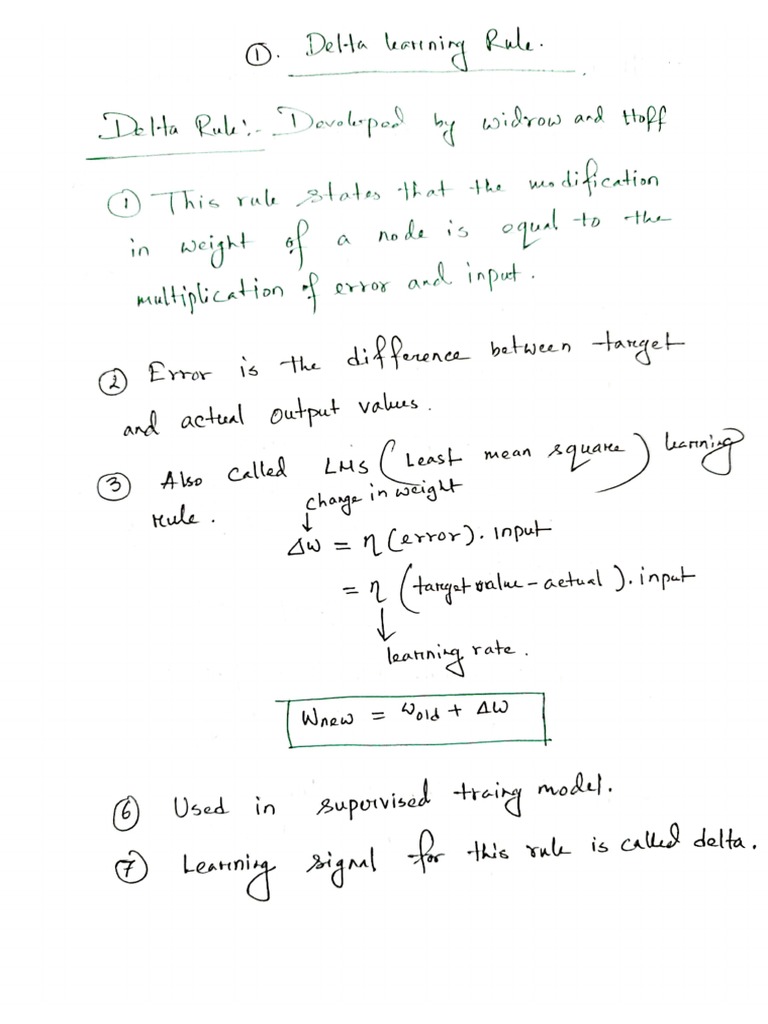 ①. Delta learning Rule.
Delta Rule:- Developed by widrow and Hoff
① This rule states that the modification
in weight of a node is equal to the
multiplication of error and input.
② Error is the difference between target
and actual output values.
③ Also called LMS (Least mean square) learning
rule.
change in weight
↓
Δw = η (error). input
= η (target value - actual). input
↓
learning rate.
Wnew = Wold + Δw
⑥ Used in supervised traing model.
⑦ Learning signal for this rule is called delta.